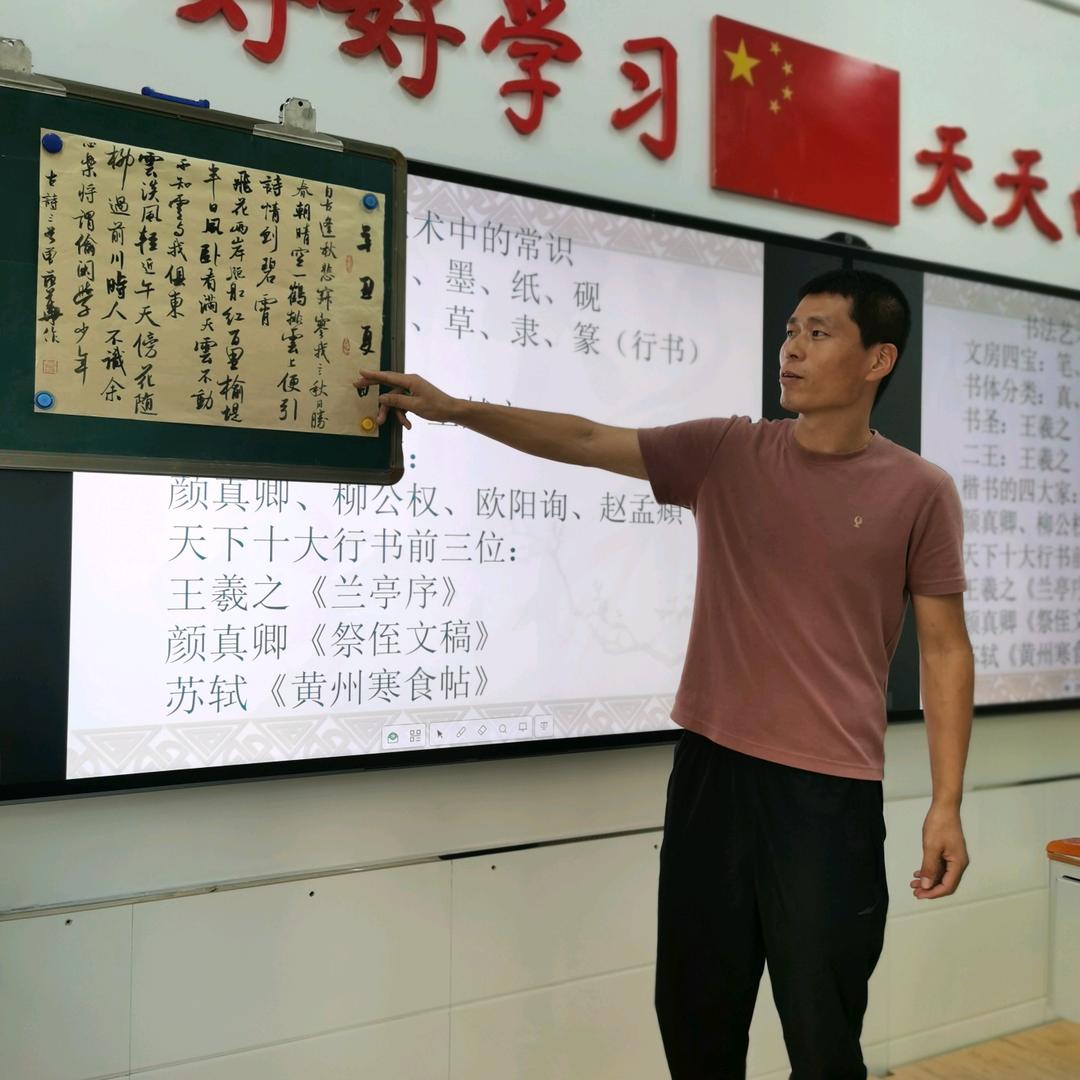 好好学习
天天
辛丑夏日
自古逢秋悲寂寥我言秋日勝
春朝晴空一鶴排雲上便引
詩情到碧霄
飛花兩岸照船紅百里榆堤
半日風卧看滿天雲不動
不知雲與我俱東
雲淡風輕近午天傍花隨
柳過前川時人不識余
心樂將謂偷閑學少年
古詩三首
术中的常识
、墨、纸、砚
、草、隶、篆（行书）
：
颜真卿、柳公权、欧阳询、赵孟頫
天下十大行书前三位：
王羲之《兰亭序》
颜真卿《祭侄文稿》
苏轼《黄州寒食帖》
书法艺
文房四宝：笔、
书体分类：真、
书圣：王羲之
二王：王羲之
楷书的四大家：
颜真卿、柳公权
天下十大行书前
王羲之《兰亭序
颜真卿《祭侄文
苏轼《黄州寒食